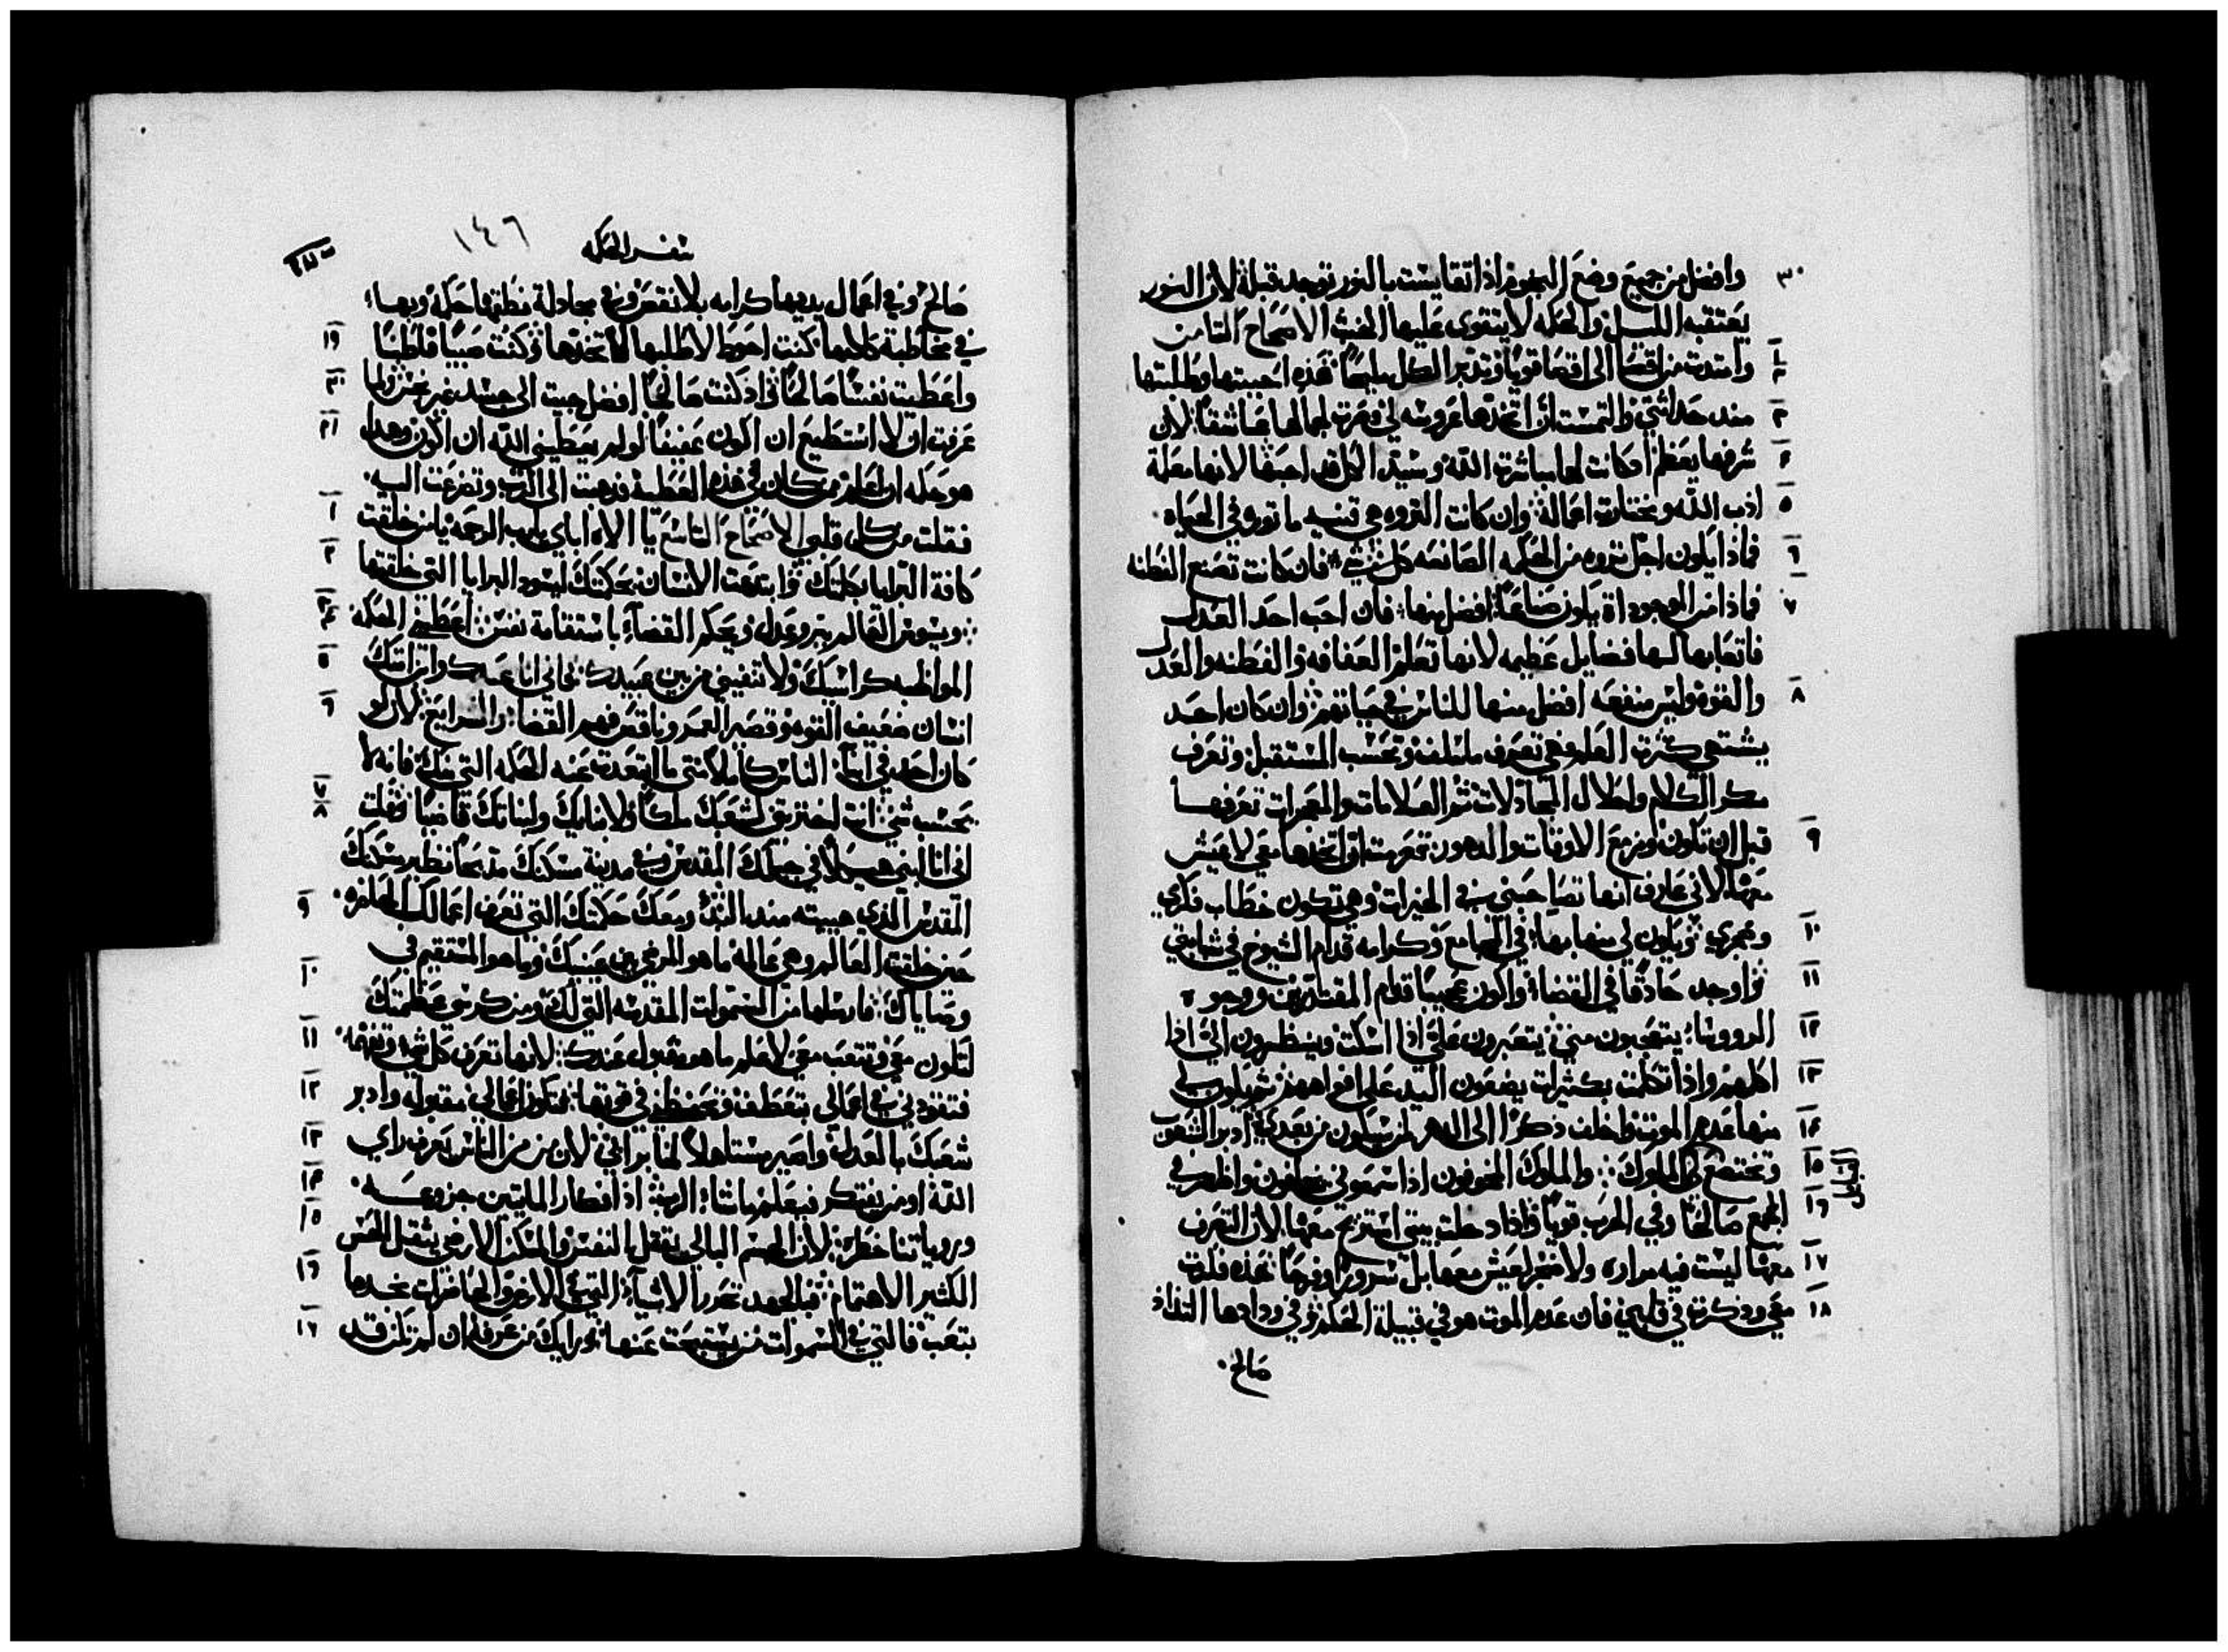 ٣٠ وافضل من جميع وضع النجوم اذا تقايست بالنور توجد قبله لان النور
يعتقبه الليل والحكمه لا يتقوى عليها الخبث الاصحاح الثامن
وامتدت من اقصا الى اقصا قويا وتدبر الكل مليحا هذه احببتها وطلبتها
٢ منذ حداثتي والتمست ان اتخذها عروسه لي وصرت لجمالها عاشقا لان
٣ شرفها يعظم اذ كانت لها مباشرت الله وسيد الكل قد احبها لانها معلمة
٤
٥ ادب الله ومختارت اعماله وان كانت الثروه هي قنيه ماثوره في الحياه
٦ فماذا يكون اجل ثروه من الحكمه الصانعه كل شي فان كانت تصنع الفطنه
٧ فماذا من الموجوداة يكون صانعا افضل منها فان احب احد العدل
فاتعابها لها فضايل عظيمه لانها تعلم العفافه والفطنه والعدل
٨ والقوه وليس منفعه افضل منها للناس في حياتهم وان كان احد
يشتهي كثرت العلم فهي تعرف ما سلف وتحسب المستقبل وتعرف
مكر الكلام واحلال المجادلات ثم العلامات والمعجزات تعرفها
٩ قبل ان تكون ومزمع الاوقات والدهور فعزمت ان اتخذها معي لاعيش
معها لاني عارف انها تصاحبني في الخيرات وهي تكون خطاب فكري
١٠ وضجري ويكون لي منها بها في المجامع وكرامه قدام الشيوخ في شبابي
١١ واوجد حاذقا في القضا واكون عجيبا قدام المقتدرين ووجوه
١٢ الرووسا يتعجبون مني يتصبرون علي اذا اسكت وينظرون الي اذا
١٣ اكلمهم واذا تكلمت بكثيرات يضعون اليد على افواههم ثم يكون لي
١٤ منها عدم الموت واخلف ذكرا الى الدهر لمن سيكون من بعدي ادبر الشعوب
١٥ وتخضع لي الملوك والملوك المخوفون اذا سمعوني يخافون واظهر في
١٦ الجمع صالحا وفي الحرب قويا واذا دخلت بيتي استريح معها لان التصرف
١٧ معها ليست فيه مراره ولا ضجر لعيش معها بل سرورا وفرحا هذه فكرت
١٨ معي وذكرت في قلبي فان عدم الموت هو في قبيلة الحكمه وفي ودادها التذاذ
صالح
سفر الحكمه
١٤٦
صالح وفي اعمال يديها كرامه بلا نقص وفي مجادلة نطقها حكمه وبها
١٩ في مخاطبة كلامها كنت احوط لاطلبها لاتخذها وكنت صبيا فاطنا
٢٠ واعطيت نفسا صالحا واذ كنت صالحا افضل جيت الى جسد غير نجس ولما
٢١ عرفت اني لا استطيع ان اكون عفيفا لو لم يعطيني الله ان اكون وهذا
هو حكمه ان اعلم من كان هذه العطيه فذهبت الى الرب وتضرعت اليه
١ فقلت من كل قلبي الاصحاح التاسع يا الاه اباي يا رب الرحمه يا من خلقت
٢ كافة البرايا بكلمتك وابتدعت الانسان بحكمتك ليسود البرايا التي خلقتها
٣ ويسوس العالم ببر وعدل ويحكم القضاء باستقامة نفس اعطني الحكمه
٤
٥ المواظبه كراسيك ولا تنفيني من بين عبيدك فاني انا عبدك وابن امتك
٦ انسان ضعيف القوه وقصير العمر وناقص فهم القضا والشرايع لان لو
كان احد في ابناء الناس كاملا متى ما ابتعدت عنه الحكمه التي منك فانه لا
٧ يحسب شي انت اخترتني لشعبك ملكا ولابنايك ولبناتك قاضيا وقلت
٨
اني انا ابني هيكلا في جبلك المقدس وفي مدينة مسكنك مذبحا نظير مسكنك
٩ المقدس الذي هيئته منذ البدء ومعك حكمتك التي تعرف اعمالك الحاضره
حين خلقت العالم وهي عالمه ما هو المرضي بين عينيك وما هو المستقيم في
١٠ وصاياك فارسلها من السموات المقدسه التي لك ومن كرسي عظمتك
١١ لتكون معي وتتعب معي لاعلم ما هو مقبول عندك لانها تعرف كل شي وتفهمه
١٢ فتقودني في اعمالي بتعطف وتحفظني في قوتها فتكون اعمالي مقبوله وادبر
١٣ شعبك بالعدل واصير مستاهلا لمنابر ابي لان من من الناس يعرف راي
١٤ الله او من يفتكر فيعلم ماشاء الرب اذ افكار المايتين جزوعه
١٥ وروياتنا خطره لان الجسم البالي يثقل النفس والمسكن الارضي يثقل الحس
١٦ الكثير الاهتمام فبالجهد ندرك الاشياء التي على الارض والحاضرات نجدها
١٧ بتعب فالتي في السموات من يستبحث عنها ورايك من عرفه ان لم تكن قد